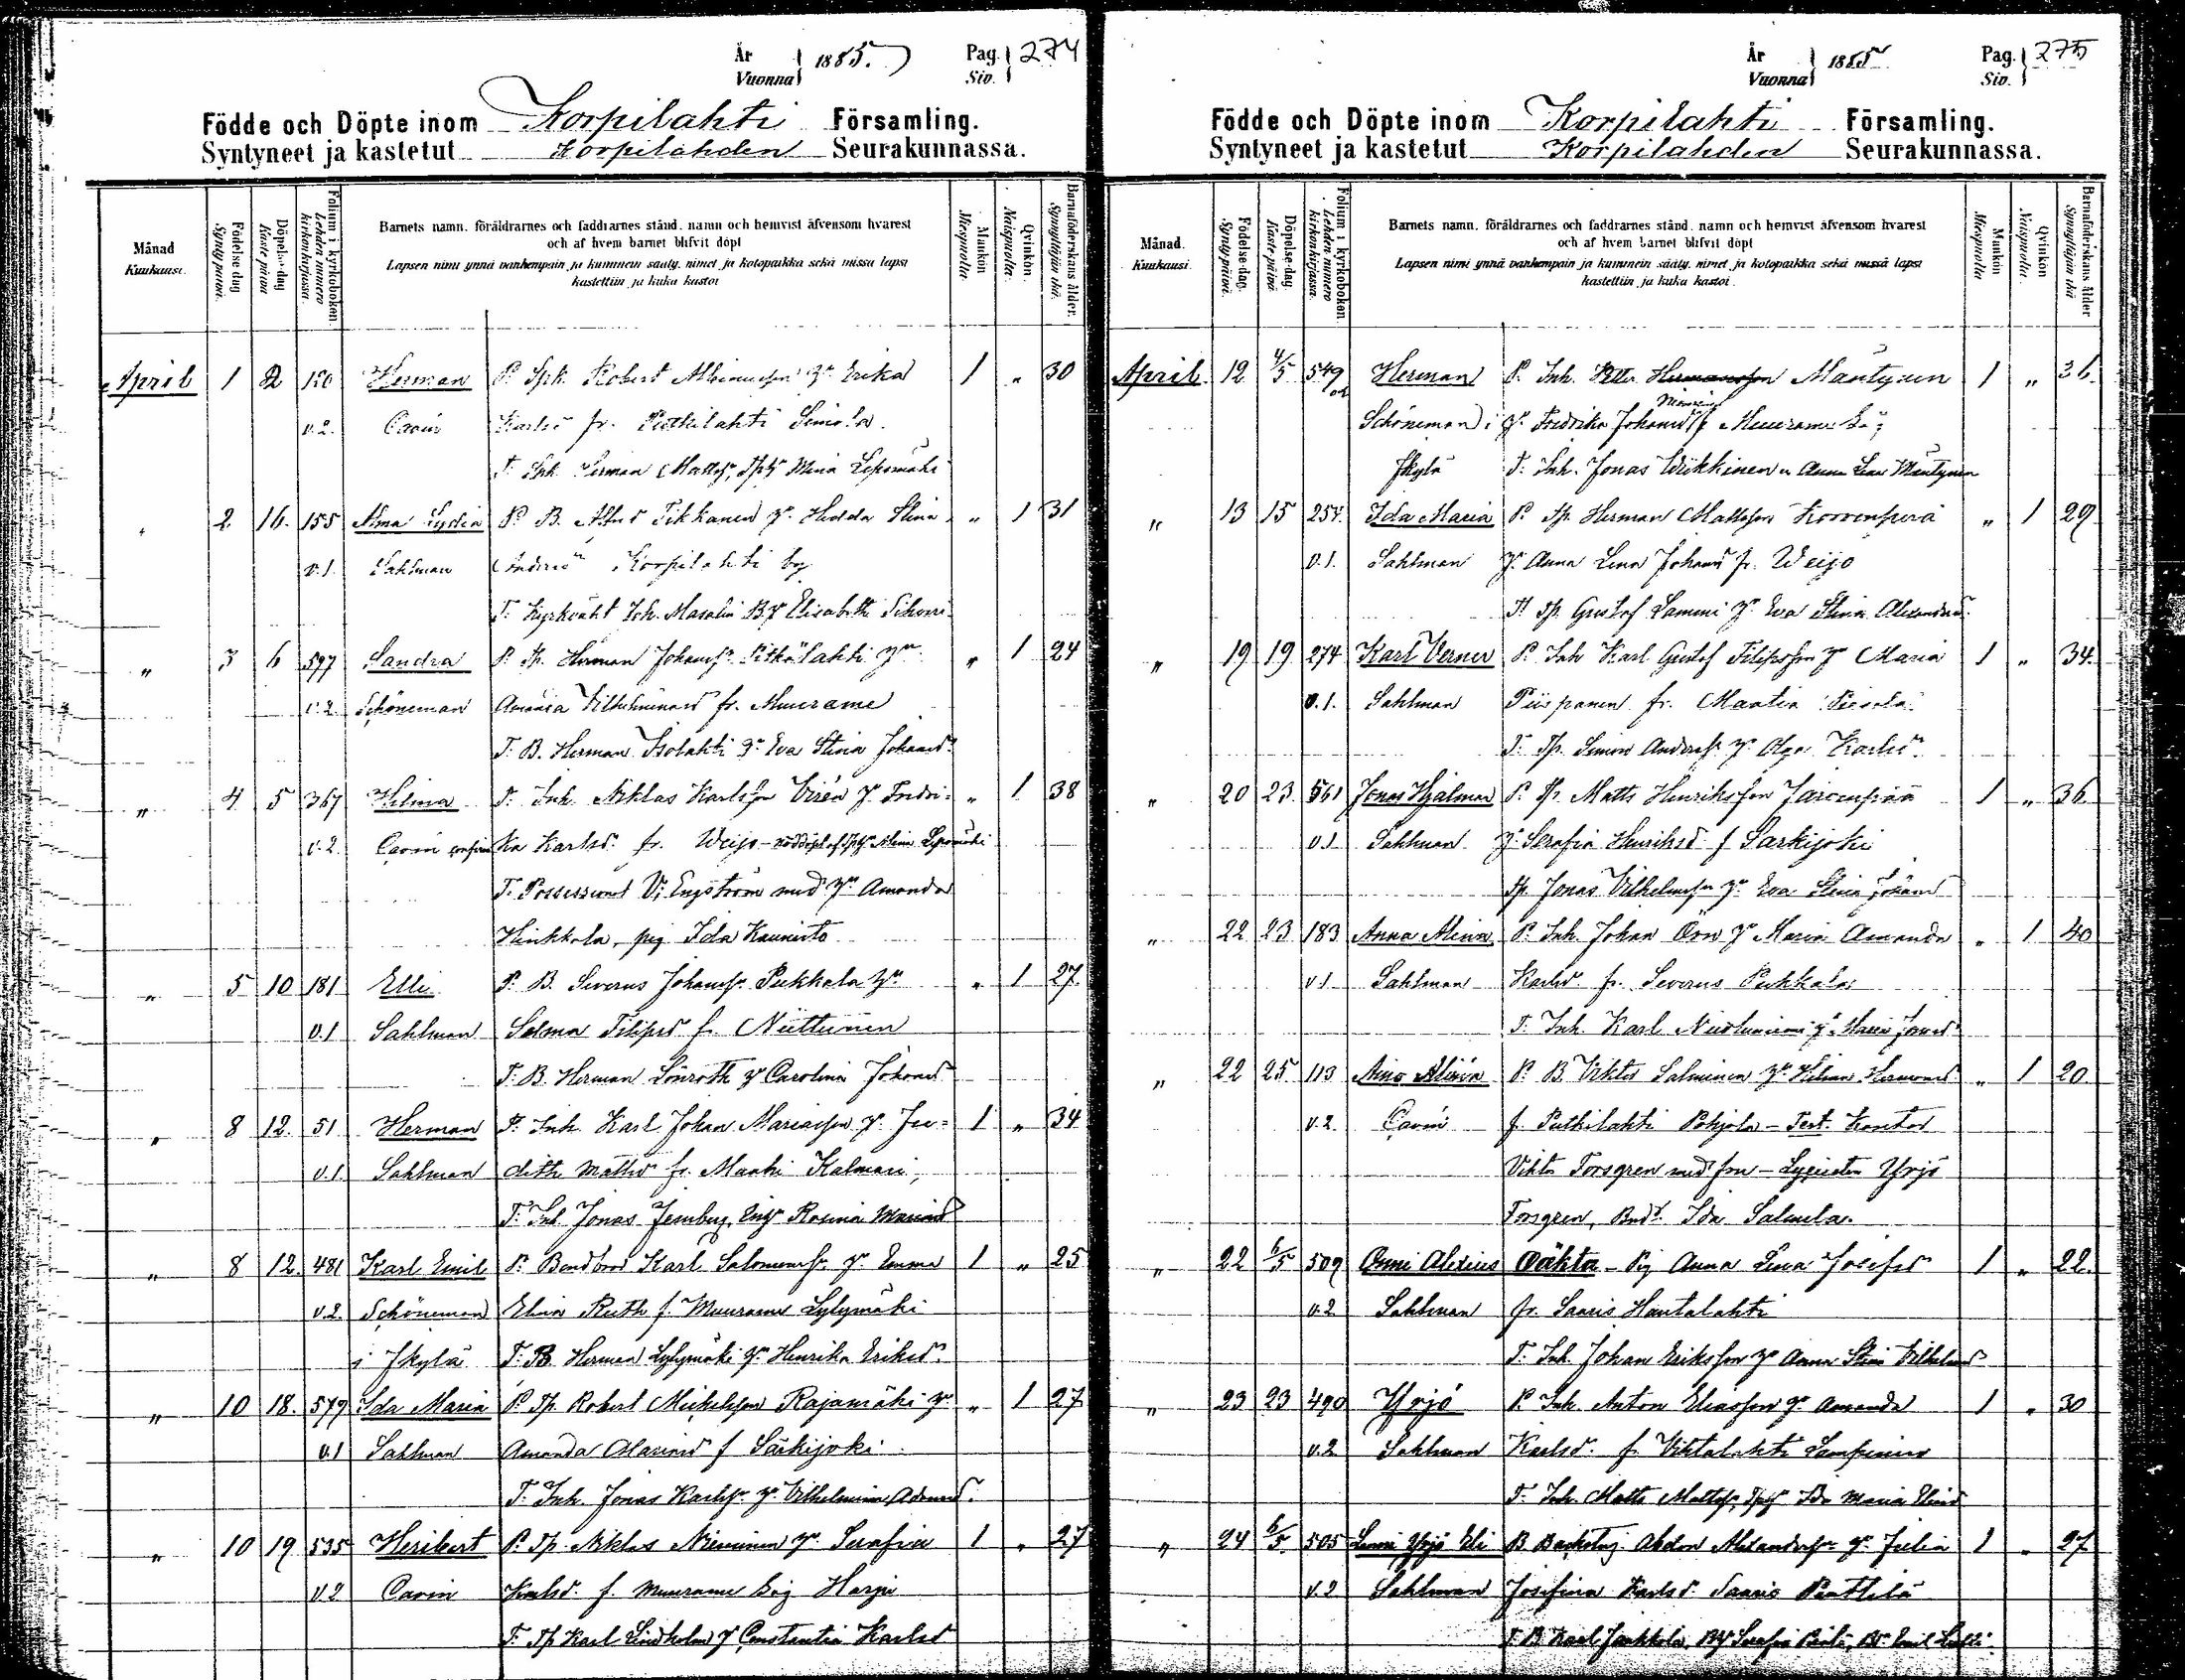 År Vuonna 1885. Pag. Siv. 274
Födde och Döpte inom Korpilahti Församling.
Syntyneet ja kastetut Korpilahden Seurakunnassa.
Månad Kuukausi. Födelse-dag Synty-päivä. Döpelse-dag Kaste-päivä Folium i kyrkoboken. Lehden numero kirkonkirjassa. Barnets namn, föräldrarnes och faddrarnes stånd, namn och hemvist äfvensom hvarest och af hvem barnet blifvit döpt Lapsen nimi ynnä vanhempain ja kummein sääty, nimet ja kotopaikka sekä missä lapsi kastettiin ja kuka kastoi Mankön Miespuolia. Qvinkön. Naispuolia. Barnaföderskans ålder. Synnyttäjän ikä.
April 1 2 120 Herman P. Sph. Robert Albinusson hu Erika 1 " 30
v.2. Cavin Karlsd. fr. Putkilahti Simola.
F. Inh. Herman Mattss., Mina Leposmäki
" 2 16. 155 Alma Lydia P. B. Alfred Tikkanen hu Hedda Stina " 1 31
v.1. Sahlman Andersd. Korpilahti by
F. Kyrkväkt. Joh. Masalin Elisabeth Sihvori
" 3 6 597 Sandra P. Tp. Herman Johanss. Pitkälahti hu " 1 24
v.2 Schöneman Amanda Vilhelminasd. fr. Muurame
F. B. Herman Isolahti hu Eva Stina Johansd.
" 4 5 367 Hilma P. Inh. Niklas Karlsson Virén hu Fredri- " 1 38
v.2. Cavin confirm. ka Karlsd. fr. Weijo - nöddöpt af Mina Leposmäki
F. Possessionat V. Engström med hu Amanda
Hinkkala, pig. Ida Kaunisto
" 5 10 181 Elli P. B. Severus Johanss. Pukkala hu " 1 27
v.1 Sahlman Salma Filipsd. f. Niittunen
F. B. Herman Lönroth hu Carolina Johansd.
" 8 12. 51 Herman P. Inh. Karl Johan Mariasson hu Ju- 1 " 34
v.1. Sahlman dith Mattsd. fr. Maahi Kalmari,
F. Inh. Jonas Jernberg, Rosina Mariasd.
" 8 12. 481 Karl Emil P. Bondbror Karl Salomonss. hu Emma 1 " 25
v.2. Schöneman Elina Ruth f. Muurame Lylymäki
i Jkylä F. B. Herman Lylymäki hu Henrika Eriksd.
" 10 18. 579 Ida Maria P. Tp. Robert Michelsson Rajamäki hu " 1 27
v.1 Sahlman Amanda f. Särkijoki
F. Inh. Jonas Karlss. hu Vilhelmina Adamsd.
" 10 19 535 Heribert P. Tp. Niklas Nieminen hu Serafia 1 " 27
v.2 Cavin Karlsd. f. Muurame by Harju
F. Tp. Karl Lindholm hu Constantia Karlsd.
År Vuonna 1885 Pag. Siv. 275
Födde och Döpte inom Korpilahti Församling.
Syntyneet ja kastetut Korpilahden Seurakunnassa.
Månad. Kuukausi. Födelse-dag. Synty-päivä. Döpelse-dag. Kaste-päivä. Folium i kyrkoboken. Lehden numero kirkonkirjassa. Barnets namn, föräldrarnes och faddrarnes stånd, namn och hemvist äfvensom hvarest och af hvem barnet blifvit döpt Lapsen nimi ynnä vanhempain ja kummein sääty, nimet ja kotopaikka sekä missä lapsi kastettiin ja kuka kastoi. Mankön Miespuolia Qvinkön Naispuolia. Barnaföderskans ålder Synnyttäjän ikä
April. 12 4/5 549 Herman P. Inh. Petter Hermansson Mäntynen 1 " 36.
Schöneman i hu Fredrika Johansd. f. Muurame by;
Jkylä F. Inh. Jonas Wiikkinen o Anna Lena Mäntynen
" 13 15 254 Ida Maria P. Tp. Herman Mattsson Korvenperä " 1 29
v.1. Sahlman hu Anna Lena Johansd. fr. Weijo
F. Tp. Gustaf Lammi hu Eva Stina Alexandersd.
" 19 19 274 Karl Verner P. Inh. Karl Gustaf Filipsson hu Maria 1 " 34.
v.1. Sahlman Piispanen fr. Maatia
F. Tp. Simon Anderss. hu Olga Karlsd.
" 20 23 561 Jonas Hjalmar P. Tp. Matts Henriksson Järvenpää 1 " 36
v.1 Sahlman hu Serafia Henriksd. f. Särkijoki
Tp. Jonas Vilhelmss. hu Eva Stina Johansd.
" 22 23 183 Anna Alina P. Inh. Johan Örn hu Maria Amanda " 1 40
v.1 Sahlman Karlsd. fr. Severus Pukkala
F. Inh. Karl hu Maria Jonasd.
" 22 25 113 Aino Aliina P. B. Viktor Salminen hu Hilma Hermansd. " 1 20
v.2. Cavin f. Putkilahti Pohjola - Test. Kantor
Viktor Forsgren med fru - Lyceisten Yrjö
Forsgren, Ida Salmela.
" 22 6/5 509 Onni Alexius Oäkta - Pig. Anna Lena Josefsd. 1 " 22.
v.2 Sahlman fr. Saaris Hautalahti
F. Inh. Johan Eriksson hu Anna Stina Vilhelmsd.
" 23 23 490 Yrjö P. Inh. Anton Eliasson hu Amanda 1 " 30
v.2 Sahlman Karlsd. f. Vihtalahti Lampinen
F. Inh. Matts Mattss., Ida Maria Eliasd.
" 24 6/5 505 Yrjö Eli B. Abdon Alexanderss. hu Julia 1 " 27
v.2 Sahlman Josefina Karlsd. Saaris Penttilä
F. B. Karl Jaakkola, Serafia